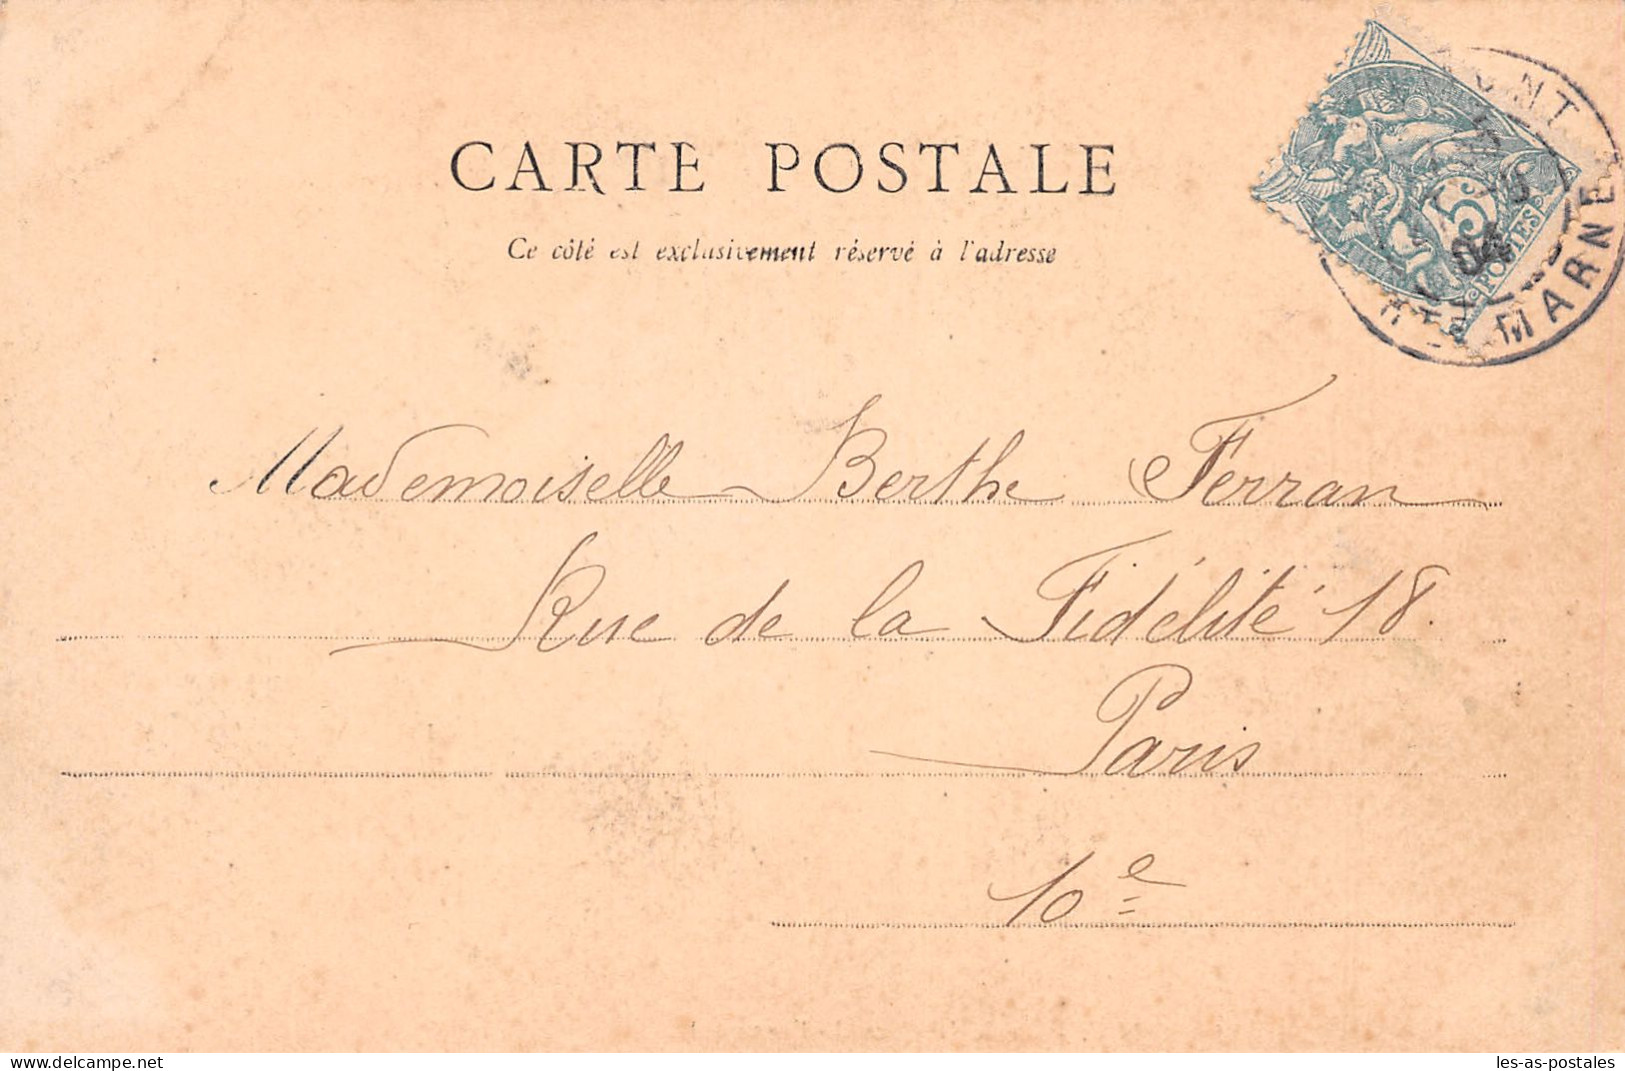 CARTE POSTALE
Ce côté est exclusivement réservé à l'adresse
5c
POSTES
04
HTE MARNE
Mademoiselle Berthe Ferran
Rue de la Fidélité 18.
Paris
10e
delcampe.net
les-as-postales